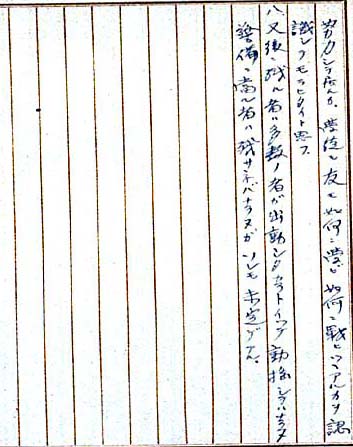 努力シテ居ルカ、学徒モ友モ如何ニ学ビ如何ニ戦ヒツツアルカヲ認
識シテモラヒタイト思フ
八、又後ニ残ル者ハ多数ノ者ガ出動シタカラトイツテ動揺シテハナラヌ
警備ニ当ル者ハ残サネバナラヌガソレモ未定デアル。